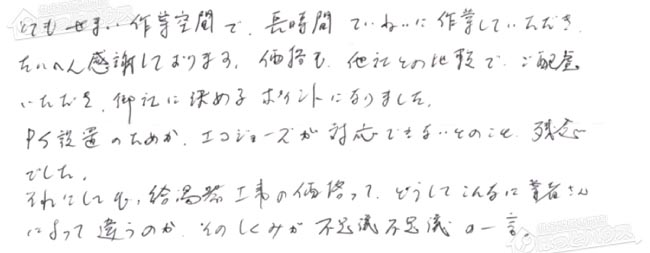 とてもせまい作業空間で、長時間ていねいに作業していただき、
たいへん感謝しております。価格も、他社との比較で、ご配慮
いただき、御社に決めるポイントになりました。
PS設置のためか、エコジョーズが対応できないとのこと、残念
でした。
それにしても、給湯器工事の価格って、どうしてこんなに業者さん
によって違うのか、そのしくみが不思議不思議の一言。